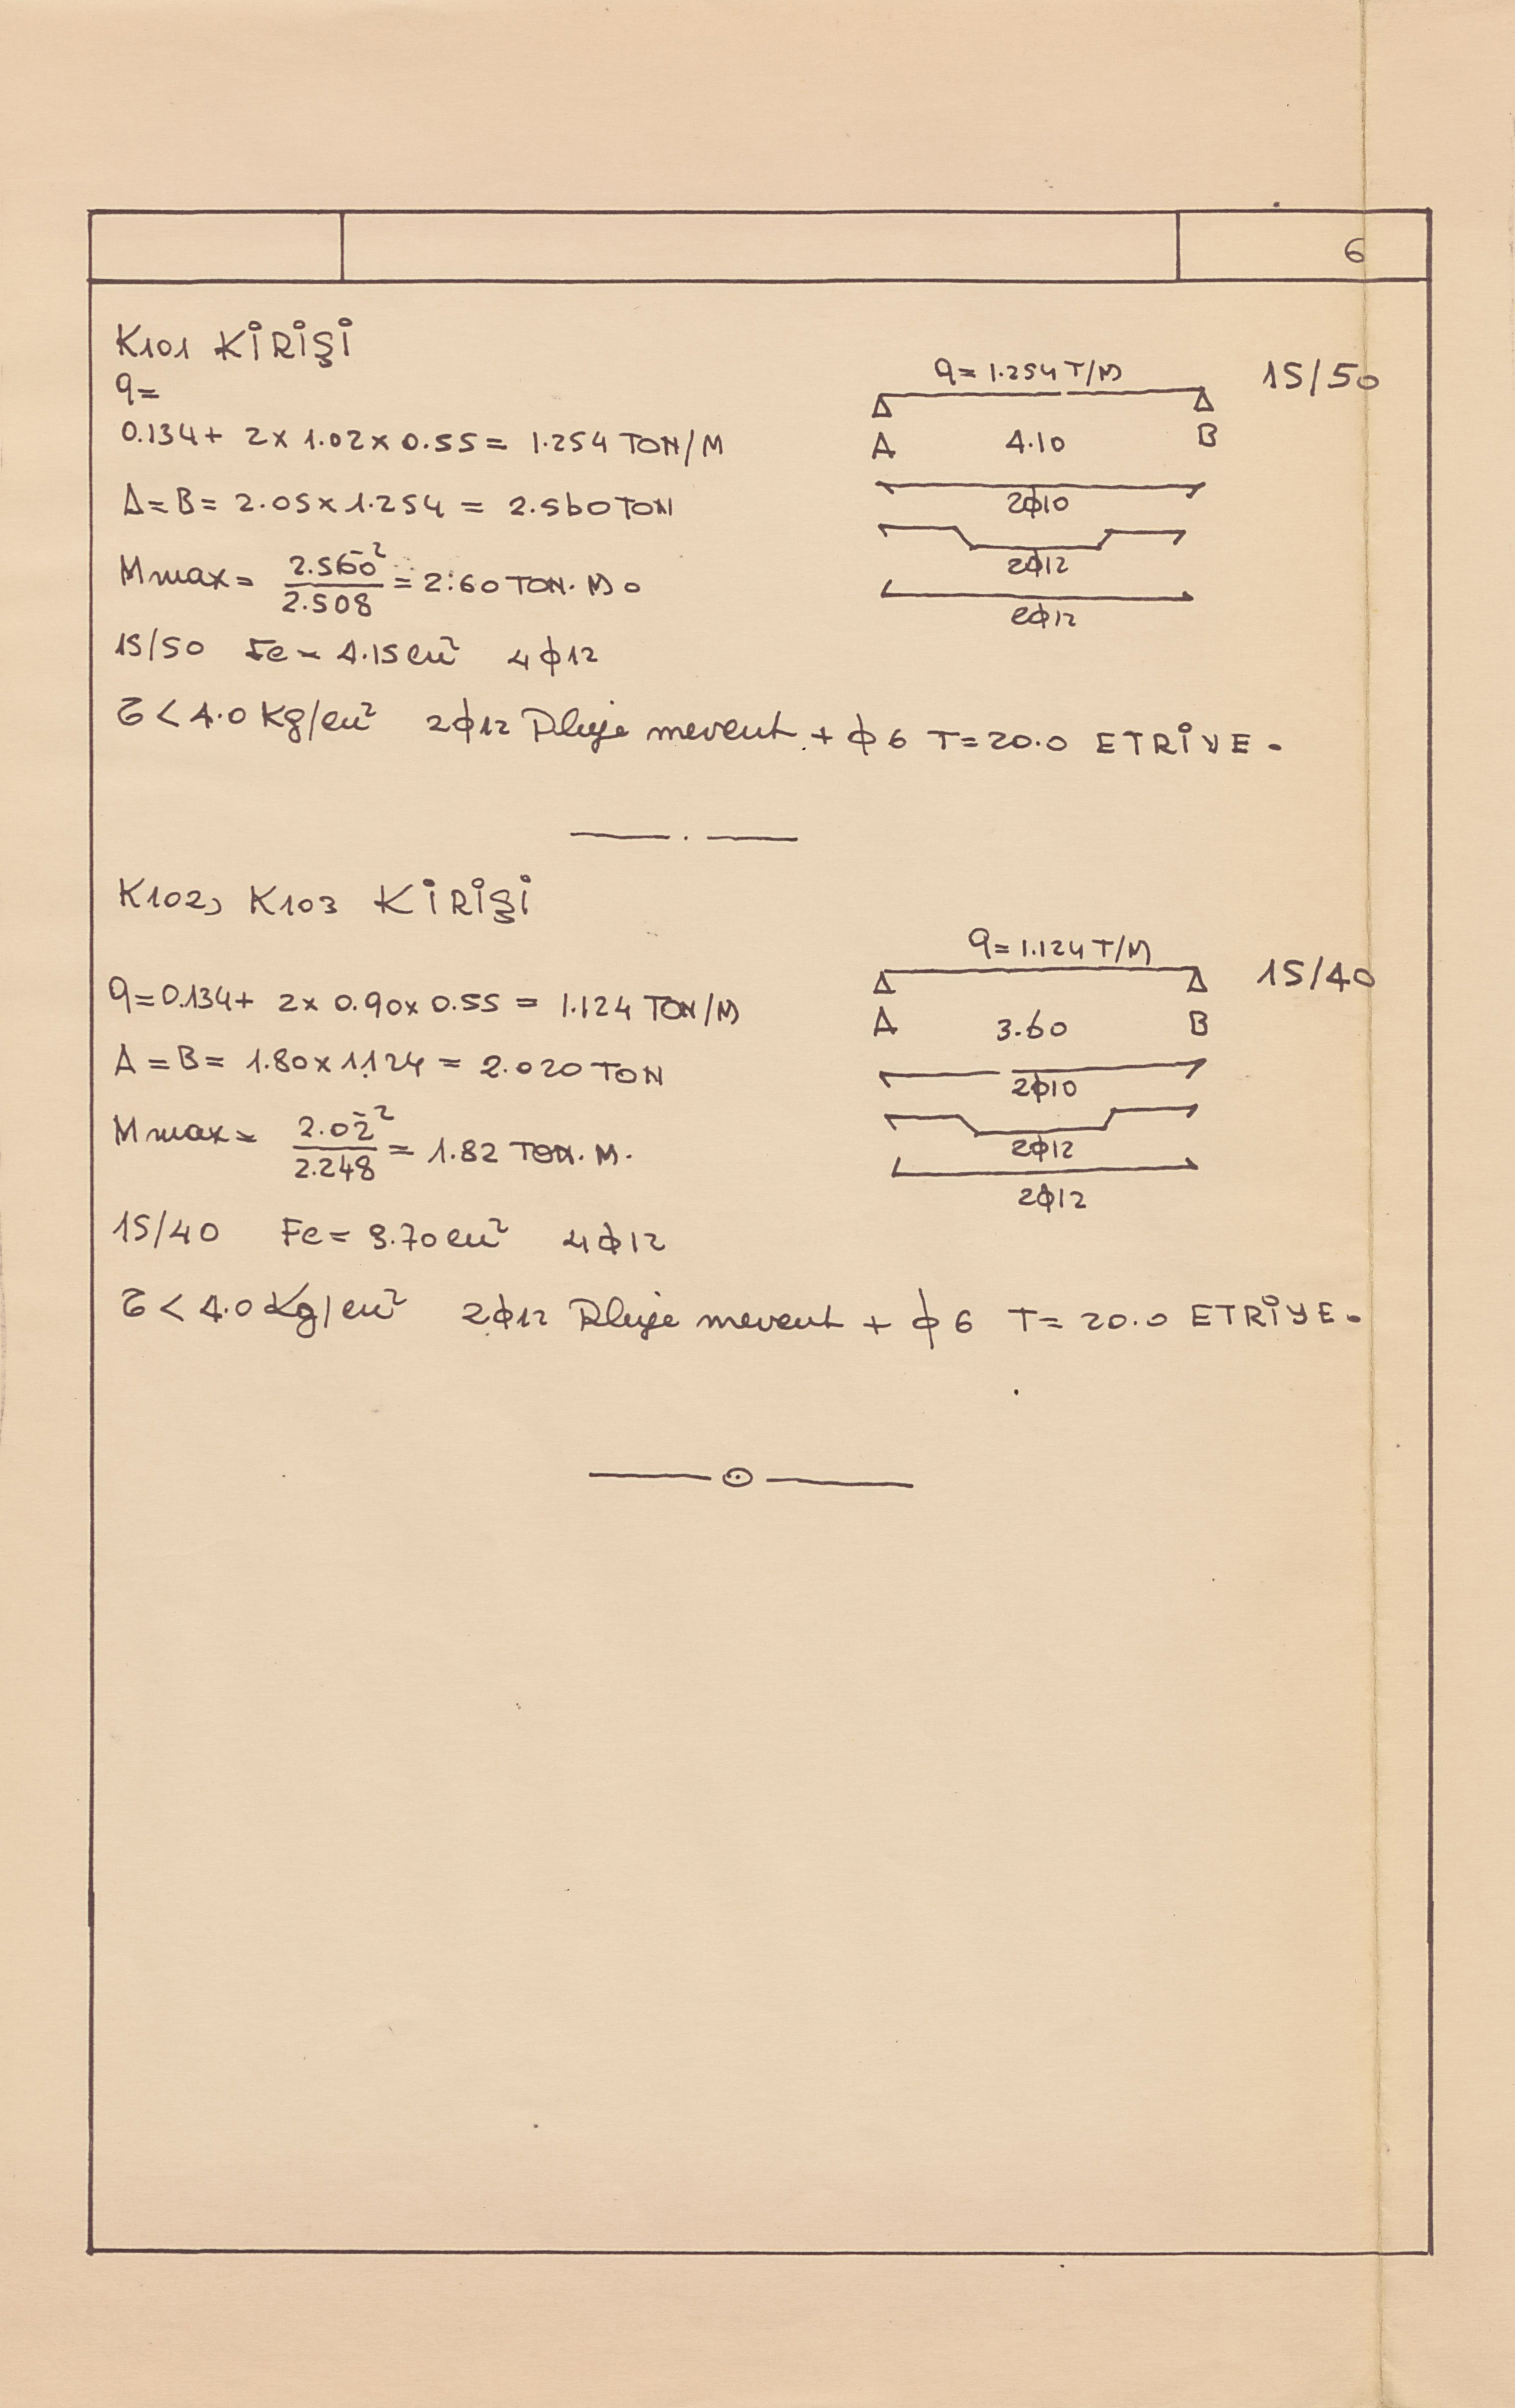 6
K101 KİRİŞİ
q=
0.134+ 2x 1.02x 0.55= 1.254 TON/M
A=B= 2.05x1.254 = 2.560 TON
Mmax= 2.560²/2.508 = 2.60 TON.M.
15/50 Fe= 4.15cm² 4ϕ12
τ<4.0 Kg/cm² 2ϕ12 Pliye mevcut + ϕ6 T=20.0 ETRİYE.
q=1.254 T/M 15/50
A 4.10 B
2ϕ10
2ϕ12
2ϕ12
K102, K103 KİRİŞİ
q=0.134+ 2x 0.90x 0.55 = 1.124 TON/M
A=B= 1.80x1.124 = 2.020 TON
Mmax= 2.02²/2.248 = 1.82 TON.M.
15/40 Fe= 3.70cm² 4ϕ12
τ<4.0 Kg/cm² 2ϕ12 Pliye mevcut + ϕ6 T=20.0 ETRİYE.
q=1.124 T/M 15/40
A 3.60 B
2ϕ10
2ϕ12
2ϕ12